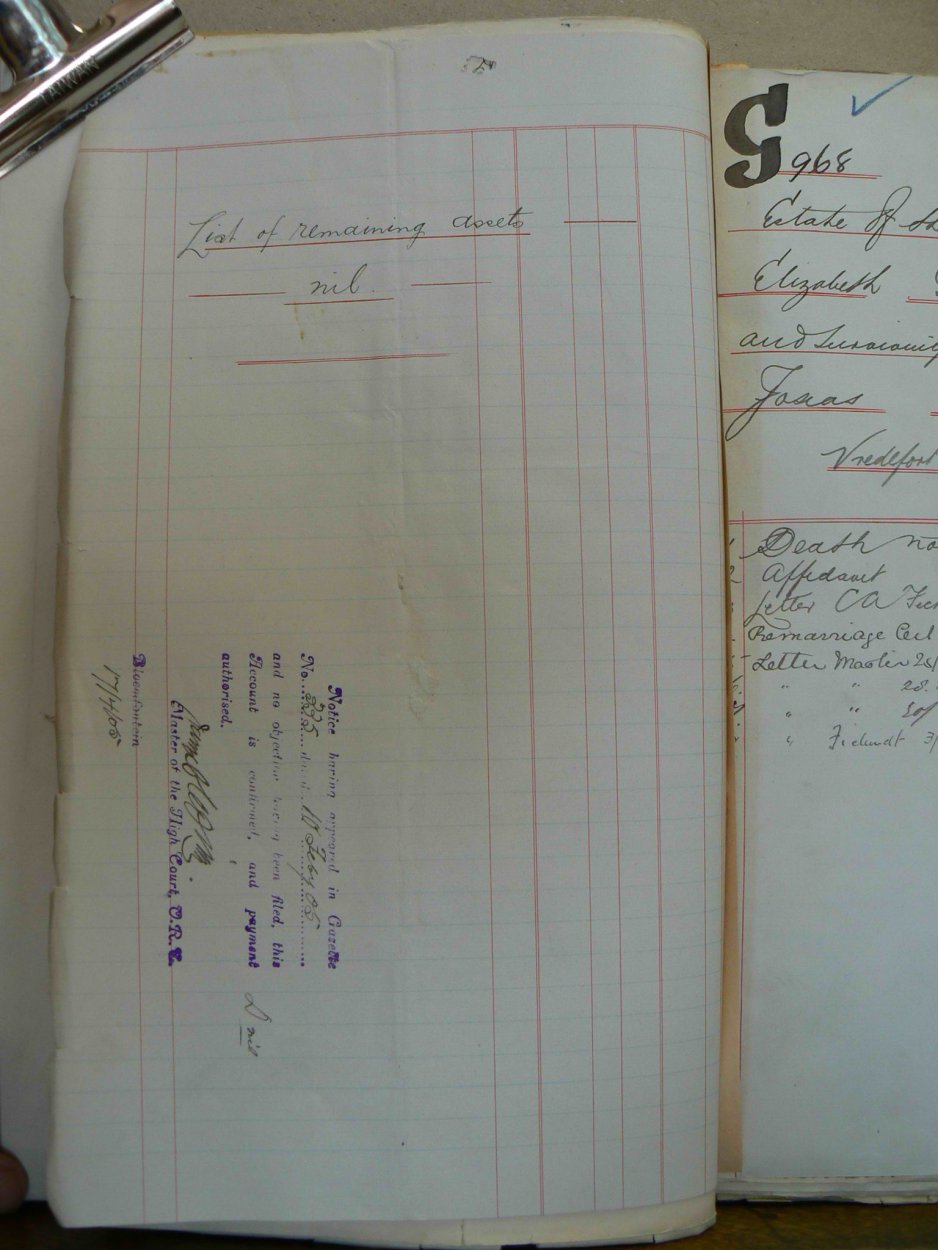 TAIWAN
List of remaining assets
nil.
Notice having appeared in Gazette
No. 335 dated 10 Feby 05
and no objection having been filed, this
Account is confirmed, and payment
authorised. D nil
Master of the High Court, O.R.C.
Bloemfontein
17/4/05
G 968
Estate of
Elizabeth
and
Josias
Vredefort
Death no
Affidavit
Letter CA
Remarriage Cert
Letter Master
" " 28
" "
" Fichardt